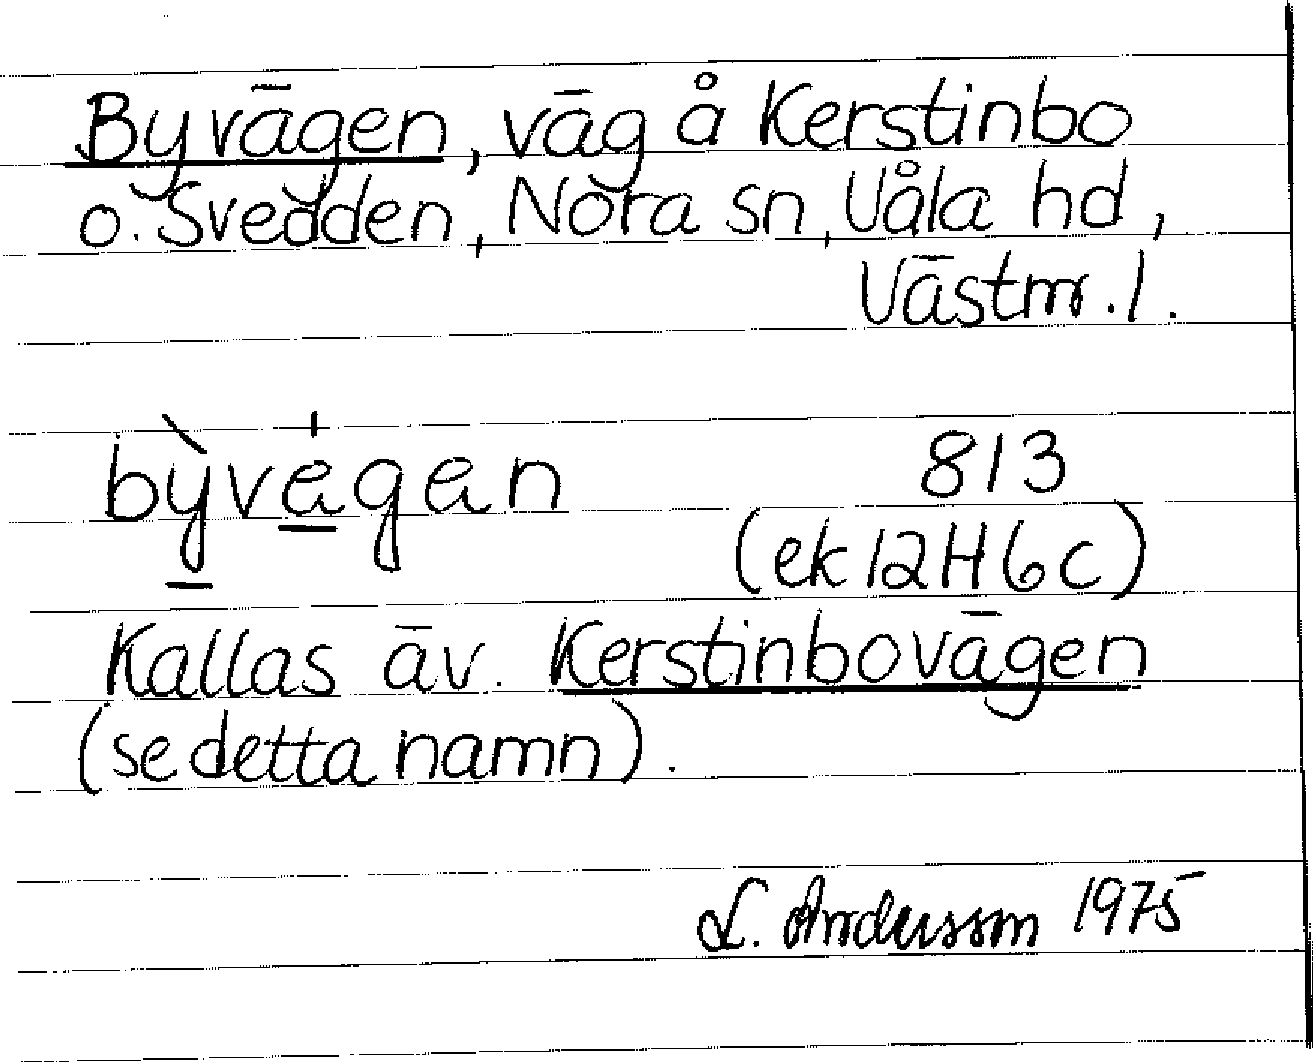 Byvägen, väg å Kerstinbo
o. Svedden, Nora sn, Våla hd,
Västm. l.
bỳvägan 813
(ek 12H6c)
Kallas äv. Kerstinbovägen
(se detta namn).
L. Andersson 1975